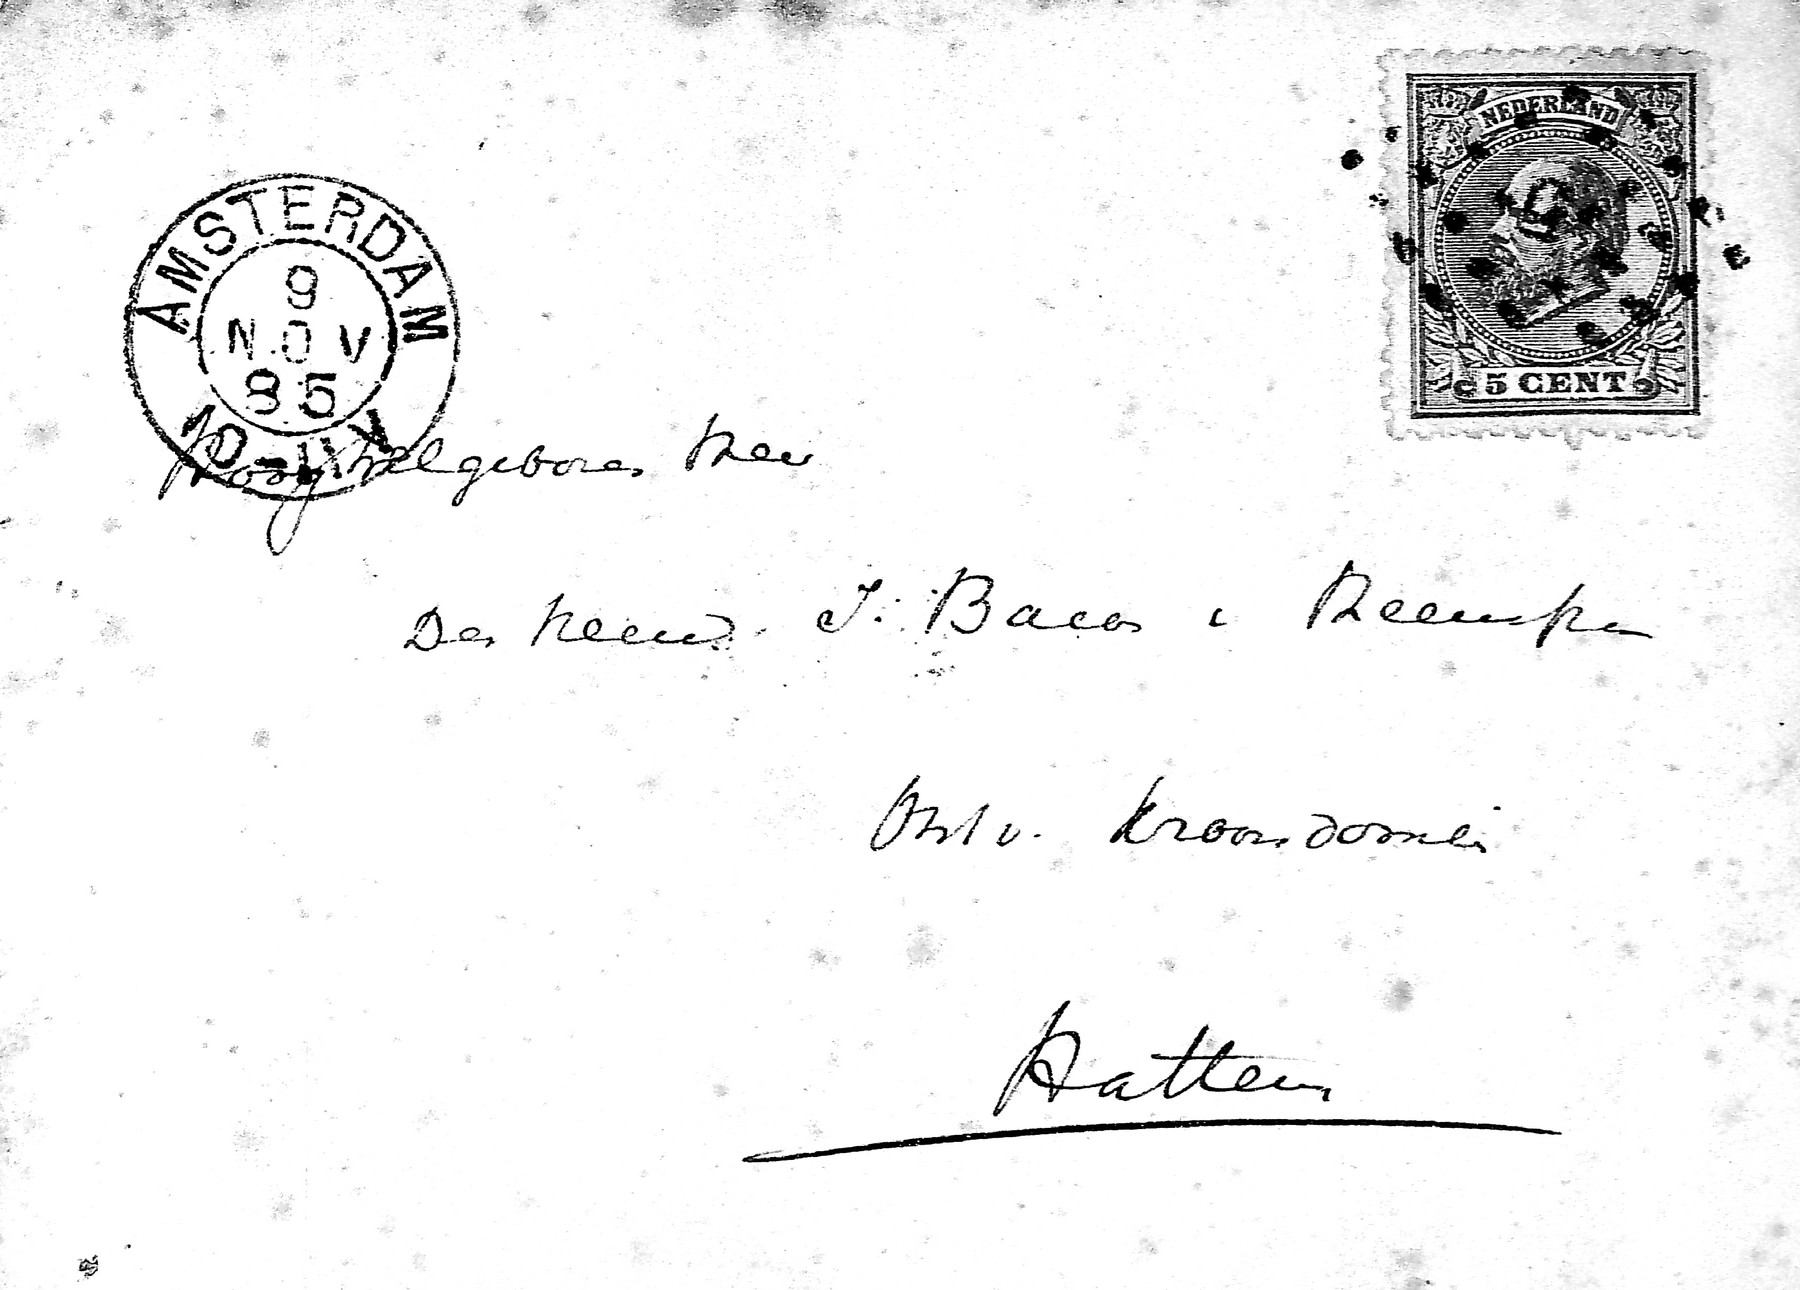 NEDERLAND
5 CENT
AMSTERDAM
9
NOV
85
Hoog Welgeboren Heer
Den Heer J. Baron v Heemstra
Kroondomein
Hattem